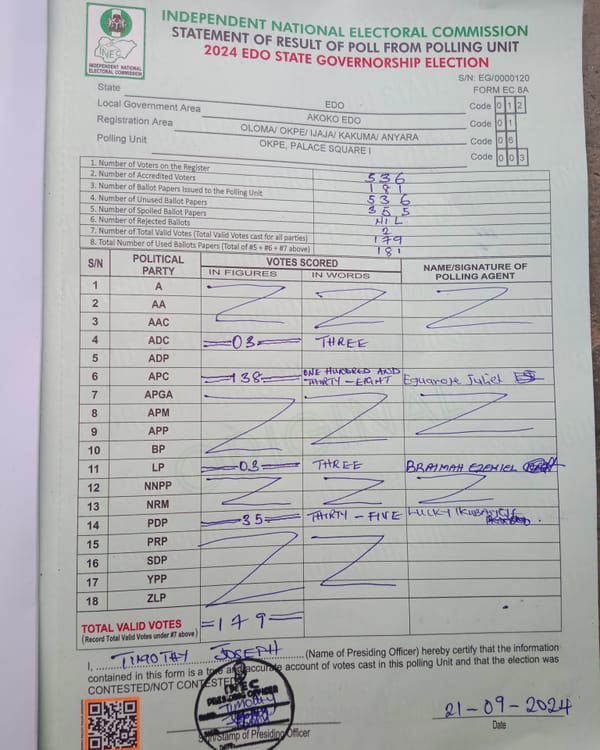 INDEPENDENT NATIONAL ELECTORAL COMMISSION
STATEMENT OF RESULT OF POLL FROM POLLING UNIT
2024 EDO STATE GOVERNORSHIP ELECTION
INEC
INDEPENDENT NATIONAL
ELECTORAL COMMISSION
S/N: EG/0000120
FORM EC 8A
State EDO Code 0 1 2
Local Government Area AKOKO EDO Code 0 1
Registration Area OLOMA/ OKPE/ IJAJA/ KAKUMA/ ANYARA Code 0 6
Polling Unit OKPE, PALACE SQUARE I Code 0 0 3
1. Number of Voters on the Register 536
2. Number of Accredited Voters 181
3. Number of Ballot Papers Issued to the Polling Unit 536
4. Number of Unused Ballot Papers 355
5. Number of Spoiled Ballot Papers NIL
6. Number of Rejected Ballots 2
7. Number of Total Valid Votes (Total Valid Votes cast for all parties) 179
8. Total Number of Used Ballots Papers (Total of #5 + #6 + #7 above) 181
S/N POLITICAL PARTY VOTES SCORED NAME/SIGNATURE OF POLLING AGENT
IN FIGURES IN WORDS
1 A
2 AA
3 AAC
4 ADC 03 THREE
5 ADP
6 APC 138 ONE HUNDRED AND THIRTY-EIGHT Eguarose Juliet
7 APGA
8 APM
9 APP
10 BP
11 LP 03 THREE BRAIMAH EZEKIEL
12 NNPP
13 NRM
14 PDP 35 THIRTY-FIVE LUCKY
15 PRP
16 SDP
17 YPP
18 ZLP
TOTAL VALID VOTES =179=
(Record Total Valid Votes under #7 above)
I, TIMOTHY JOSEPH (Name of Presiding Officer) hereby certify that the information
contained in this form is a true and accurate account of votes cast in this polling Unit and that the election was
CONTESTED/NOT CONTESTED
INEC
PRESIDING OFFICER
TIMOTHY
Sign/Stamp of Presiding Officer
DATE:
21-09-2024
Date